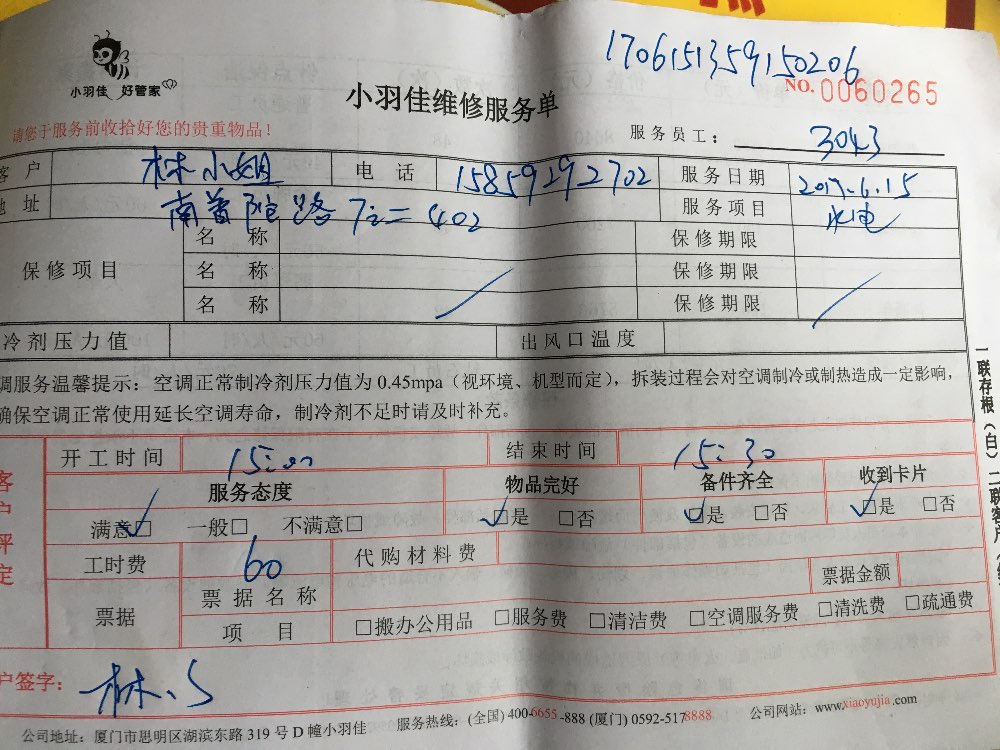 1706151359150206
小羽佳 好管家
小羽佳维修服务单
NO. 0060265
请您于服务前收拾好您的贵重物品！
服务员工： 3043
客户 林小姐 电话 15859292702 服务日期 2017.6.15
地址 南普陀路 7之二 402 服务项目 水电
保修项目 名称 保修期限
名称 保修期限
名称 保修期限
冷剂压力值 出风口温度
调服务温馨提示：空调正常制冷剂压力值为0.45mpa（视环境、机型而定），拆装过程会对空调制冷或制热造成一定影响，
确保空调正常使用延长空调寿命，制冷剂不足时请及时补充。
客户评定
开工时间 15:00 结束时间 15:30
服务态度 物品完好 备件齐全 收到卡片
满意□ 一般□ 不满意□ □是 □否 □是 □否 □是 □否
工时费 60 代购材料费
票据 票据名称 票据金额
项目 □搬办公用品 □服务费 □清洁费 □空调服务费 □清洗费 □疏通费
户签字： 林小
公司地址：厦门市思明区湖滨东路319号D幢小羽佳 服务热线：(全国) 400-6655-888 (厦门) 0592-5178888 公司网站：www.xiaoyujia.com
一联存根（白）二联客户